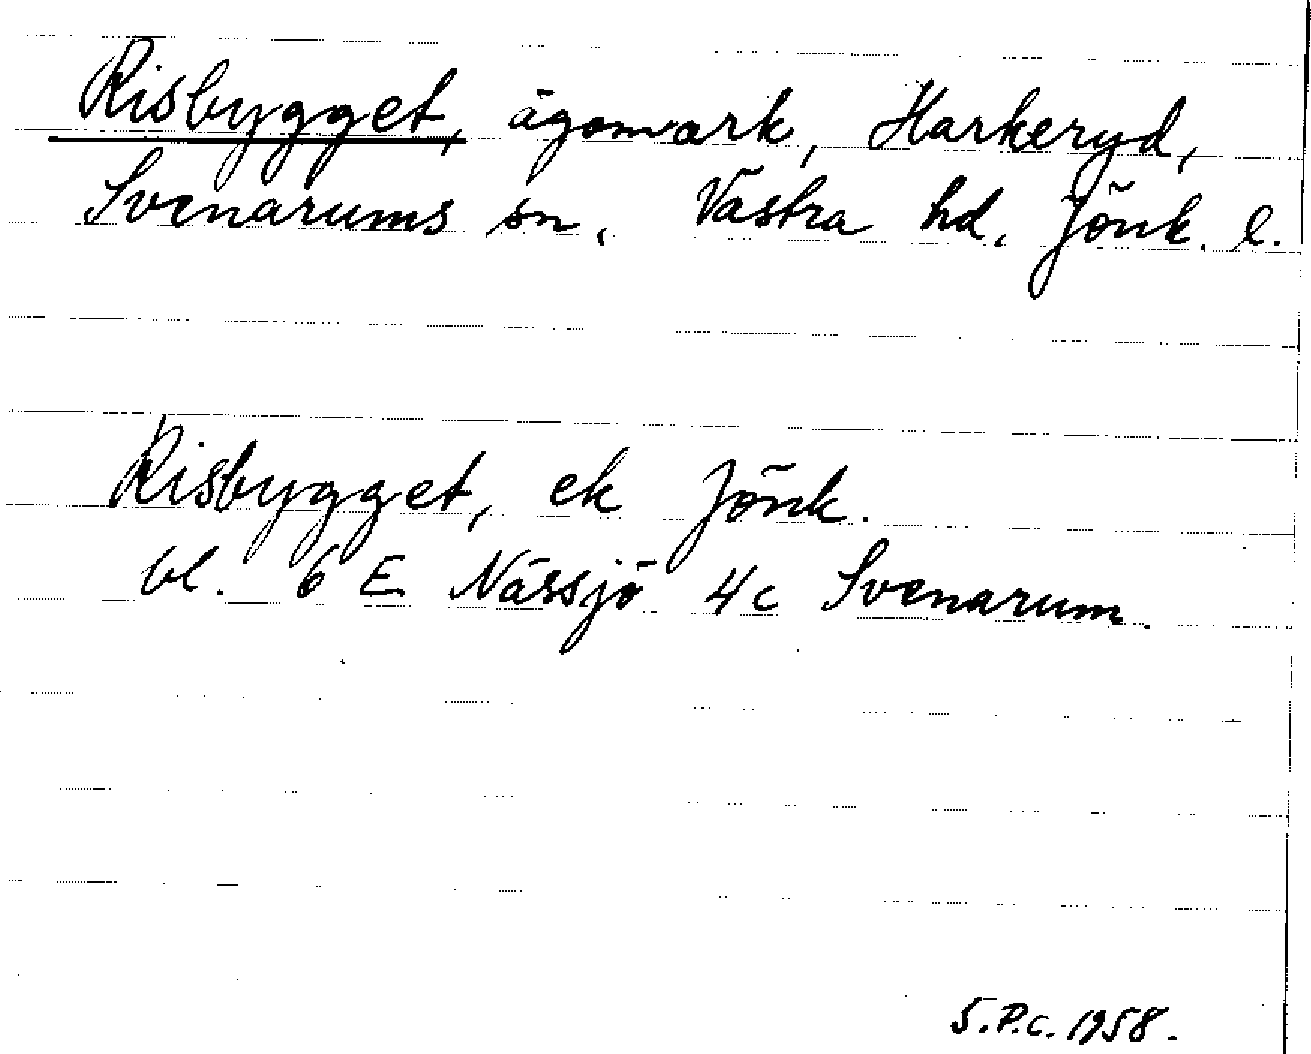 Risbygget, ägomark, Harkeryd,
Svenarums sn, Västra hd, Jönk. l.
Risbygget, ek Jönk.
bl. 6 E Nässjö 4c Svenarum.
S.P.C. 1958.